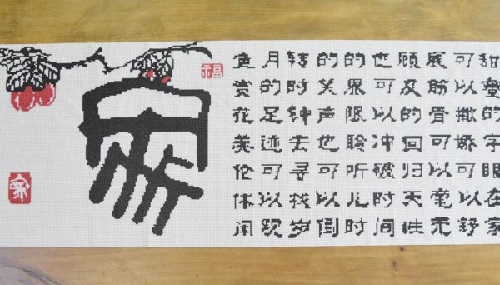 甜蜜的字眼在家
可以撒娇可以舒
展筋骨可以毫无
顾及的回归天性
也可以冲破时间
的界限聆听儿时
的笑声也可以倒
转时钟去寻找岁
月的足迹可以观
鱼赏花美伦休闲
福
家
家